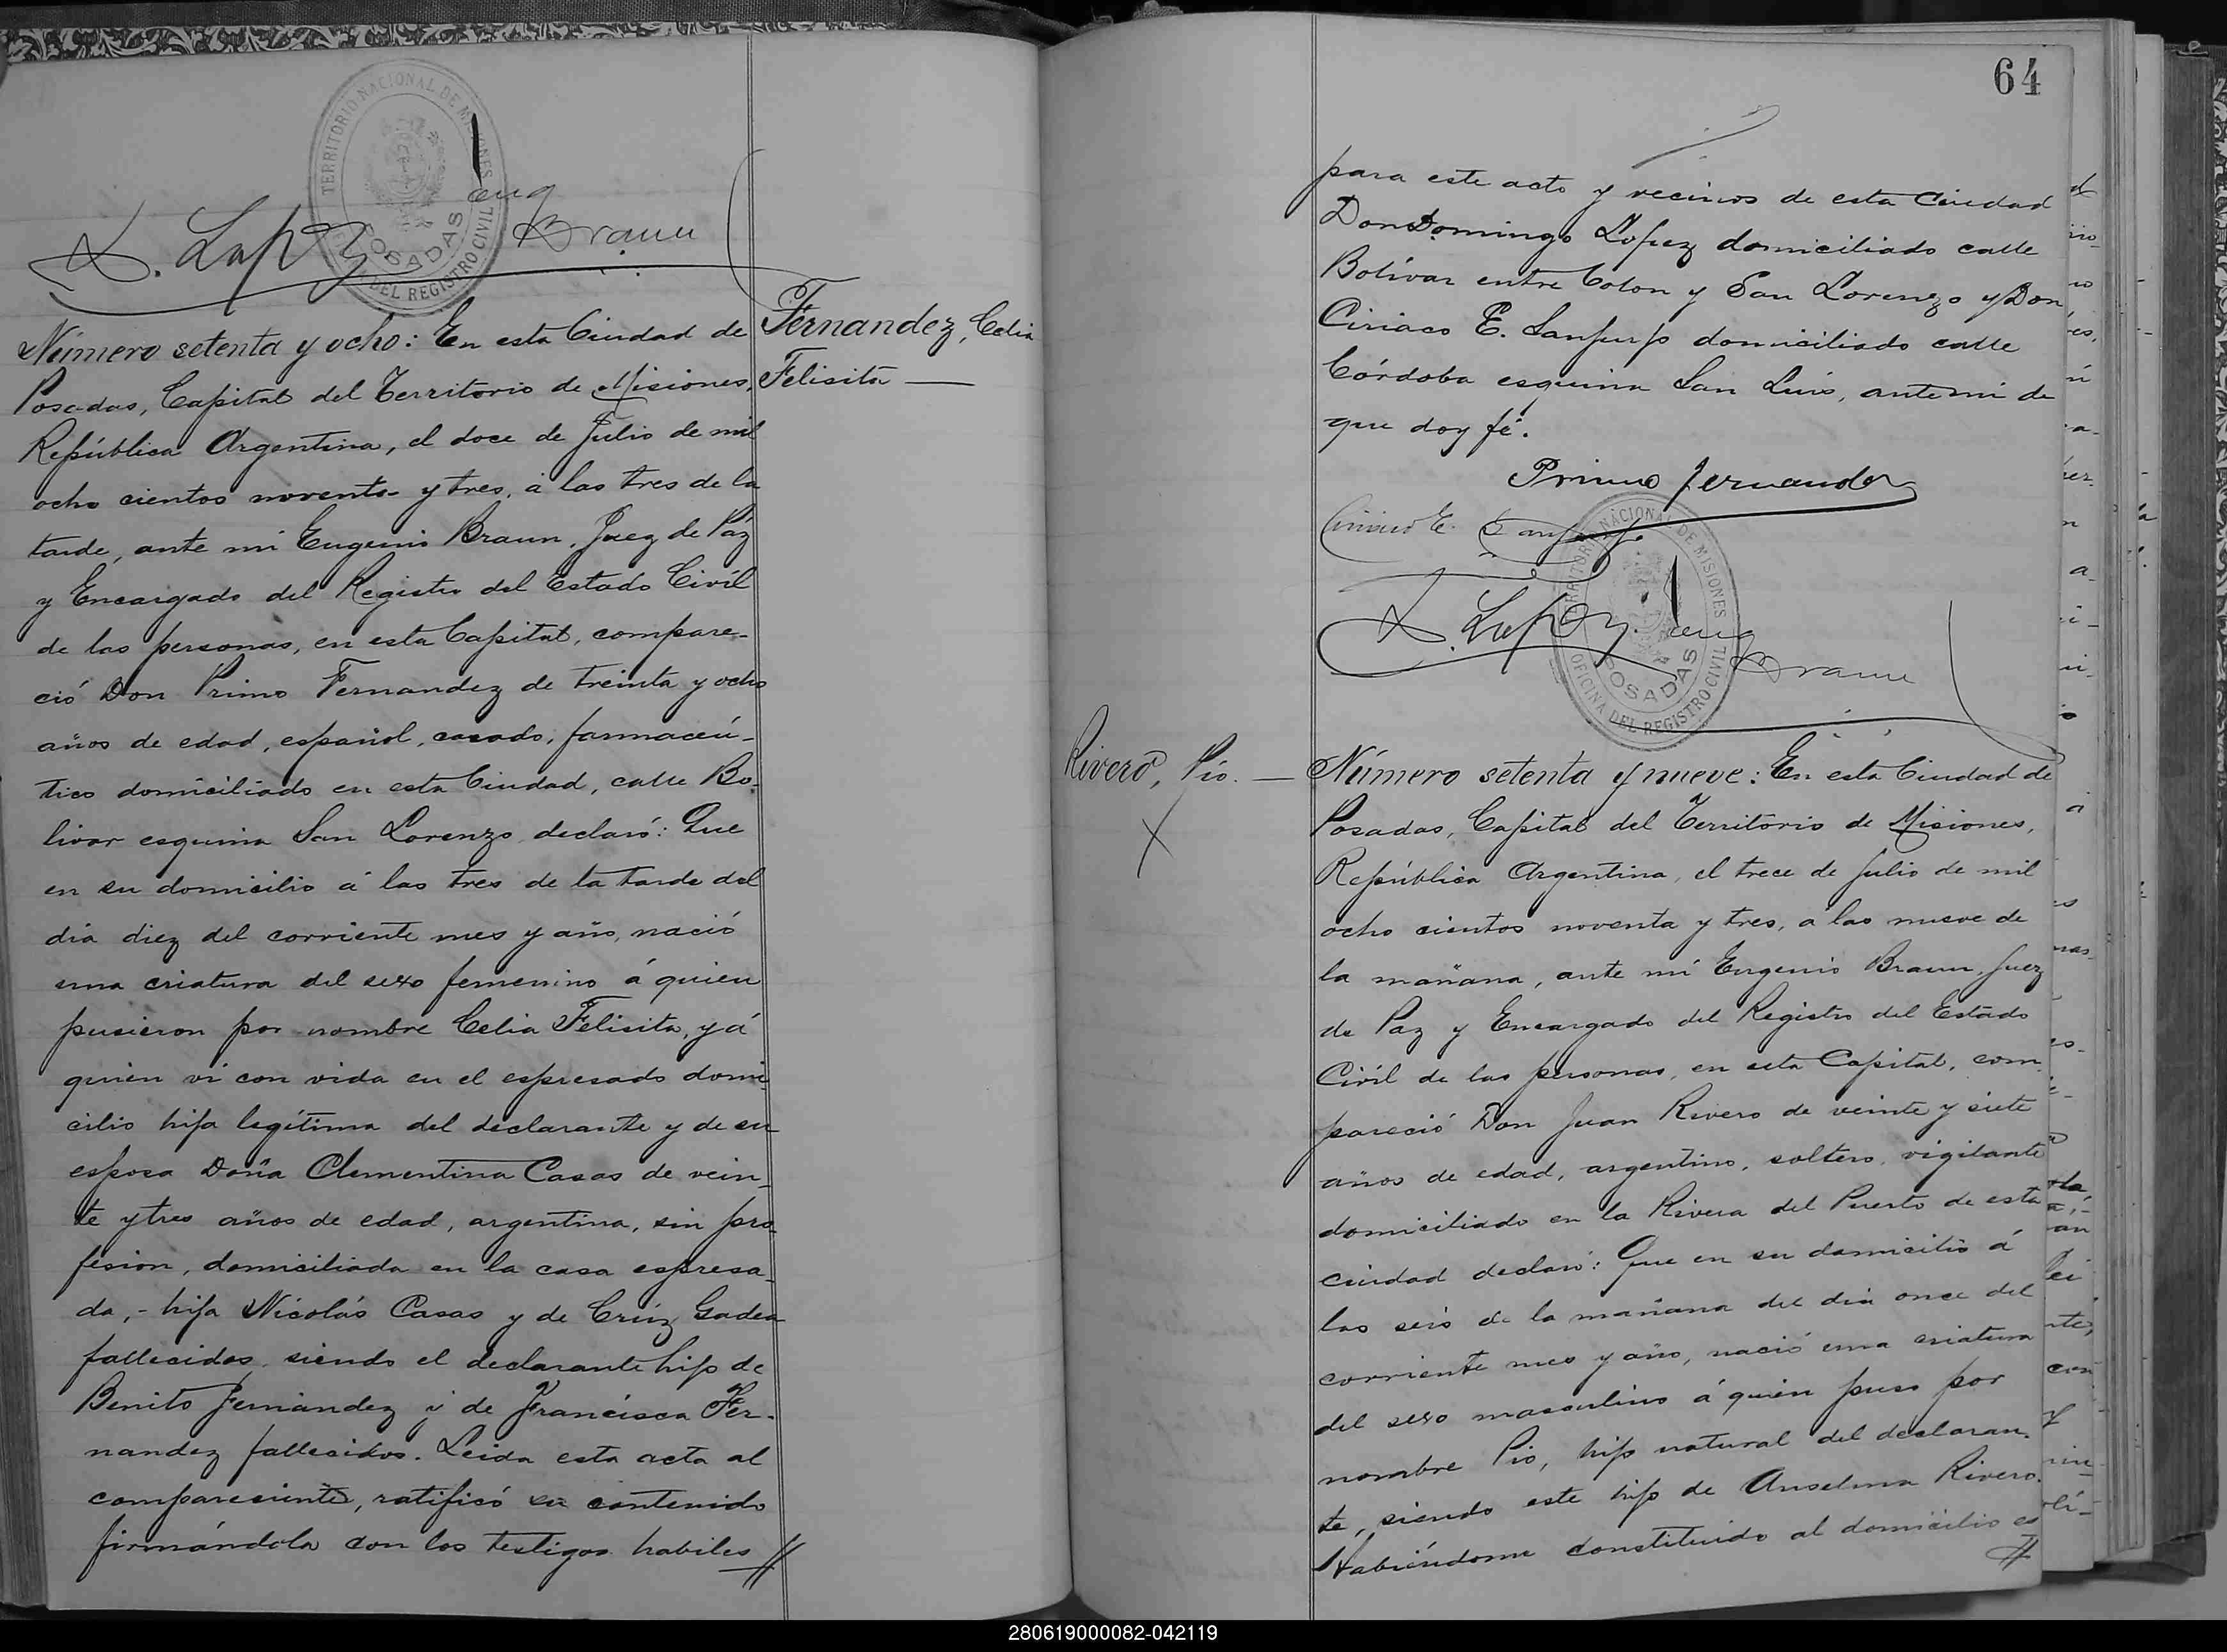 TERRITORIO NACIONAL DE MISIONES
POSADAS
DEL REGISTRO CIVIL
Eug
D. Lopez Braun
Fernandez, Celia
Felisita —
Número setenta y ocho: En esta Ciudad de
Posadas, Capital del Territorio de Misiones,
República Argentina, el doce de Julio de mil
ocho cientos noventa y tres, á las tres de la
tarde, ante mi Eugenio Braun, Juez de Páz
y Encargado del Registro del Estado Civíl
de las personas, en esta Capital, compare-
ció Don Primo Fernandez de treinta y ocho
años de edad, español, casado, farmaceú-
tico domiciliado en esta Ciudad, calle Bo-
livar esquina San Lorenzo declaró: Que
en su domicilio á las tres de la tarde del
dia diez del corriente mes y año, nació
una criatura del sexo femenino á quien
pusieron por nombre Celia Felisita, y á
quien ví con vida en el espresado domi-
cilio hija legítima del declarante y de su
esposa Doña Clementina Casas de vein-
te y tres años de edad, argentina, sin pro-
fesion, domiciliada en la casa espresa-
da, - hija Nicolás Casas y de Crúz Gadea
fallecidos, siendo el declarante hijo de
Benito Fernández y de Francisca Fer-
nandez fallecidos. Leida esta acta al
compareciente, ratificó su contenido
firmándola con los testigos habiles //
64
para este acto y vecinos de esta Ciudad
Don Domingo Lopez domiciliado calle
Bolívar entre Colon y San Lorenzo y Don
Ciriaco E. Sanjurjo domiciliado calle
Córdoba esquina San Luis, ante mi de
que doy fé.
Primo Fernandez
Ciriaco E. Sanjurjo
TERRITORIO NACIONAL DE MISIONES
POSADAS
OFICINA DEL REGISTRO CIVIL
D. Lopez. Eug
Braun
Rivero, Pío. —
X
Número setenta y nueve: En esta Ciudad de
Posadas, Capital del Territorio de Misiones,
República Argentina, el trece de Julio de mil
ocho cientos noventa y tres, á las nueve de
la mañana, ante mí Eugenio Braun, Juez
de Paz y Encargado del Registro del Estado
Civíl de las personas, en esta Capital, com-
pareció Don Juan Rivero de veinte y siete
años de edad, argentino, soltero, vigilante
domiciliado en la Rivera del Puerto de esta
ciudad declaró: Que en su domicilio á
las seis de la mañana del dia once del
corriente mes y año, nació una criatura
del sexo masculino á quien puso por
nombre Pio, hijo natural del declaran-
te, siendo este hijo de Anselma Rivero.
Habiéndome constituido al domicilio es
//
280619000082-042119